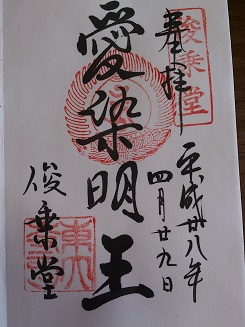 奉拝
俊乗堂
平成廿八年
四月廿九日
愛染明王
俊乗堂
東大寺